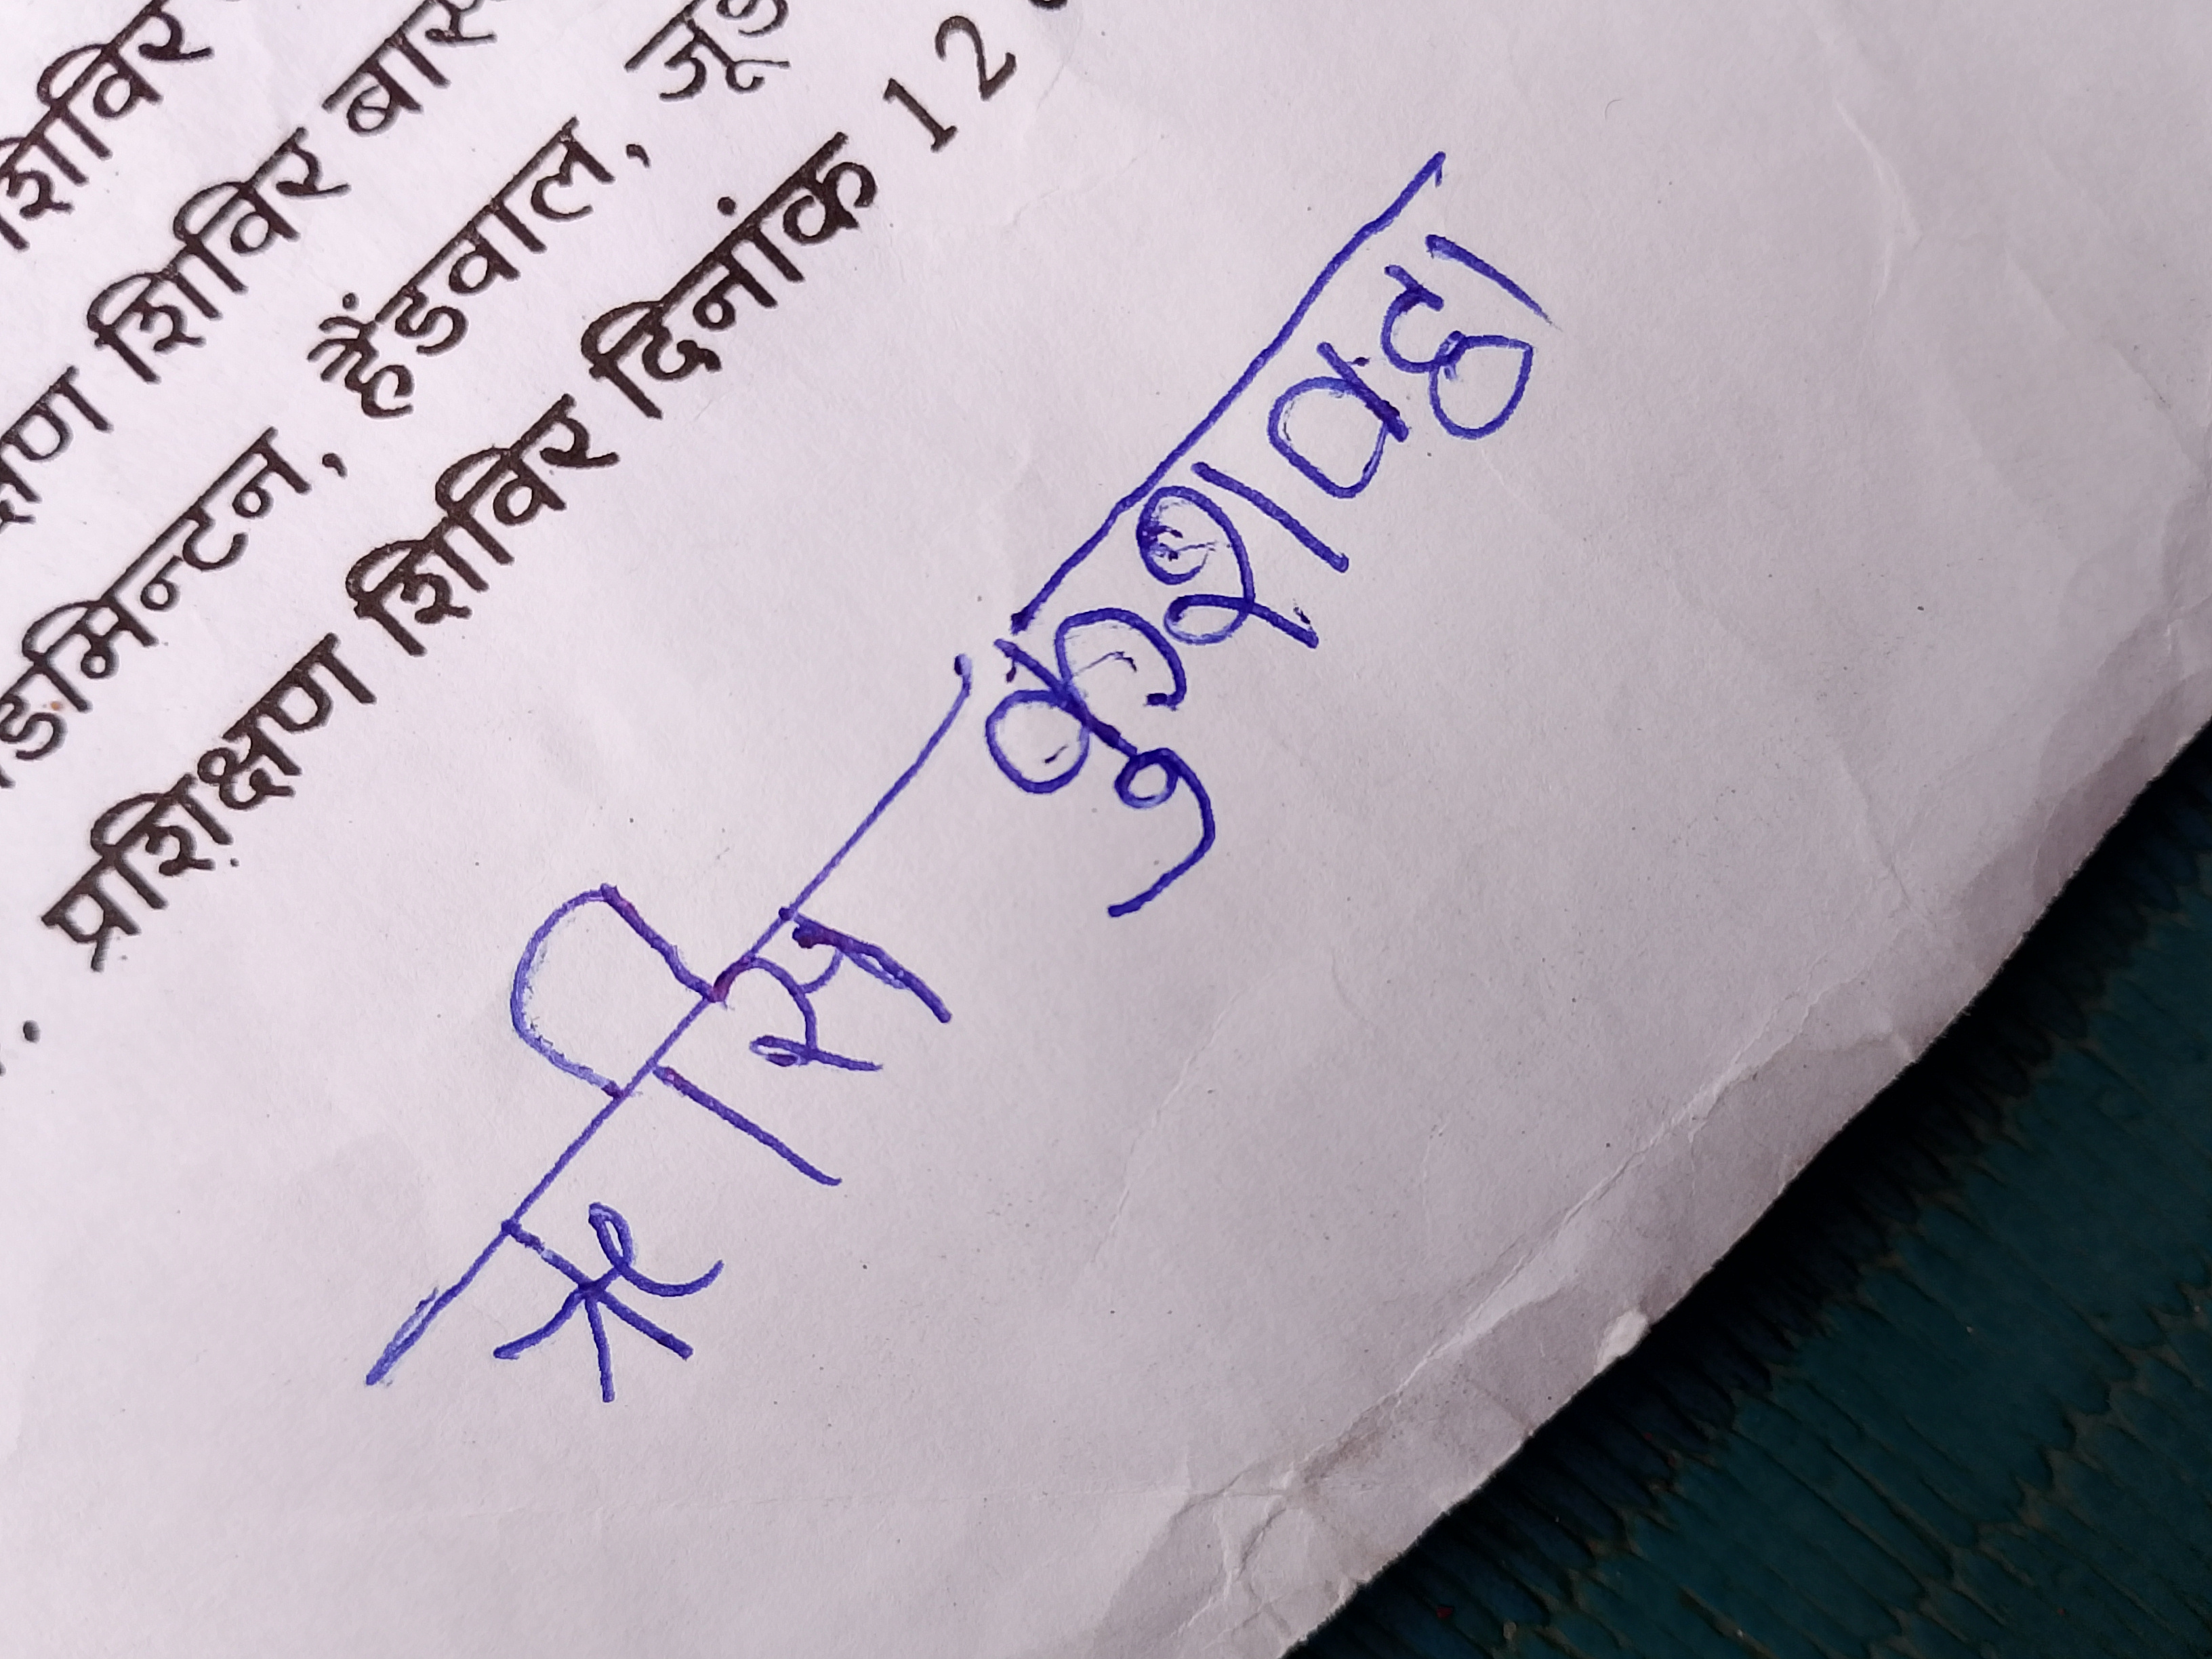 शिविर
क्षण शिविर बास
डमिन्टन, हैंडवाल, जू
प्रशिक्षण शिविर दिनांक 12
ऋसि कुशवहा